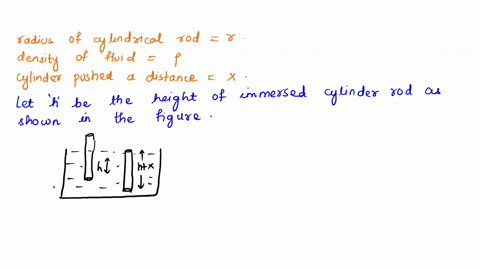 radius of cylindrical rod = r.
density of fluid = ρ
cylinder pushed a distance = x.
Let 'h' be the height of immersed cylinder rod as
shown in the figure.
h
h+x